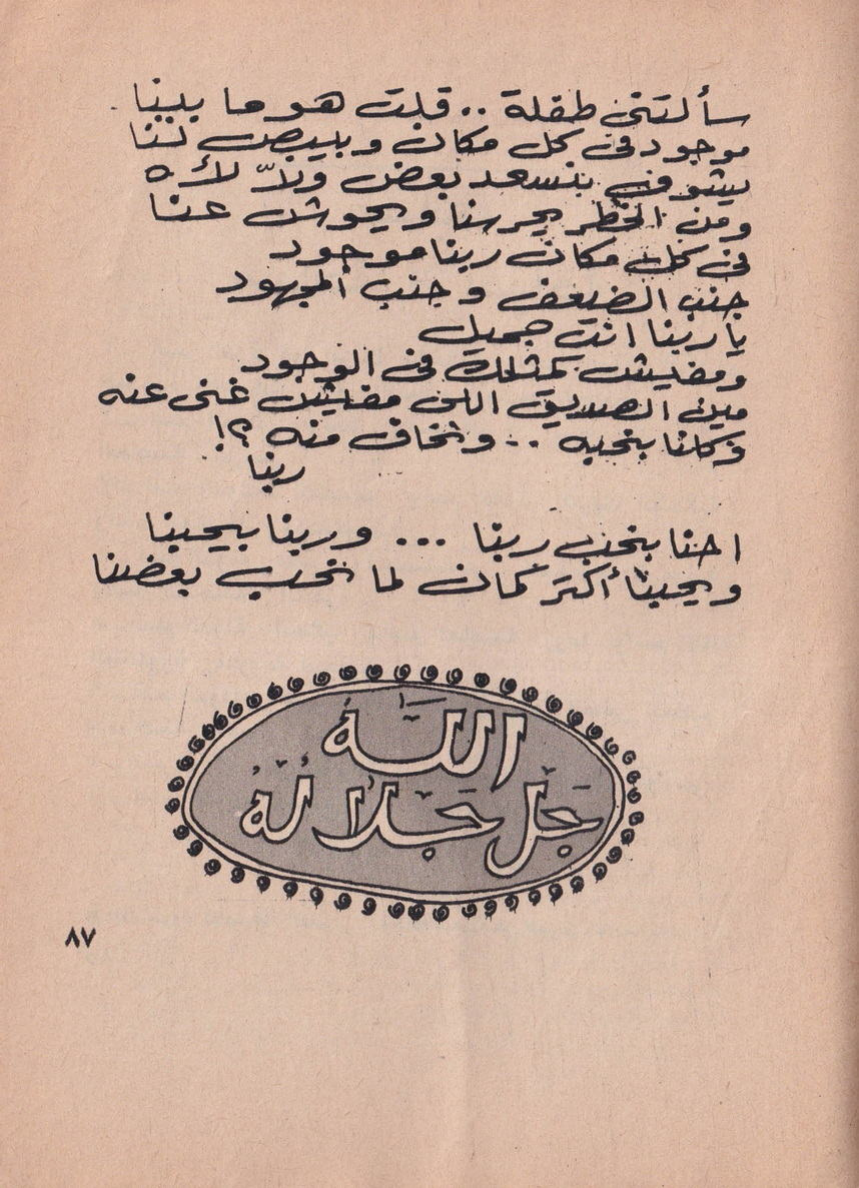 سألتنى طفلة .. قلت هو ما بيننا
موجود فى كل مكان وبيبص لنا
بيشوف بنسعد بعض ولاّ لأ.. ه
ومن الخطر يحرسنا ويحوش عننا
فى كل مكان ربنا موجود
جنب الضعف وجنب المجهود
يا ربنا انت جميل
ومفيش كمثلك فى الوجود
مين الصديق اللى مفيش غنى عنه
وكلنا بنحبه .. ونخاف منه ؟!
ربنا
احنا بنحب ربنا ... وربنا بيحبنا
ويحبنا أكتر كمان لما نحب بعضنا
الله
جل جلاله
٨٧